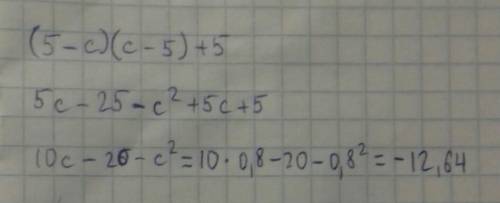 (5-c)(c-5)+5
5c-25-c²+5c+5
10c-20-c²=10·0,8-20-0,8²=-12,64